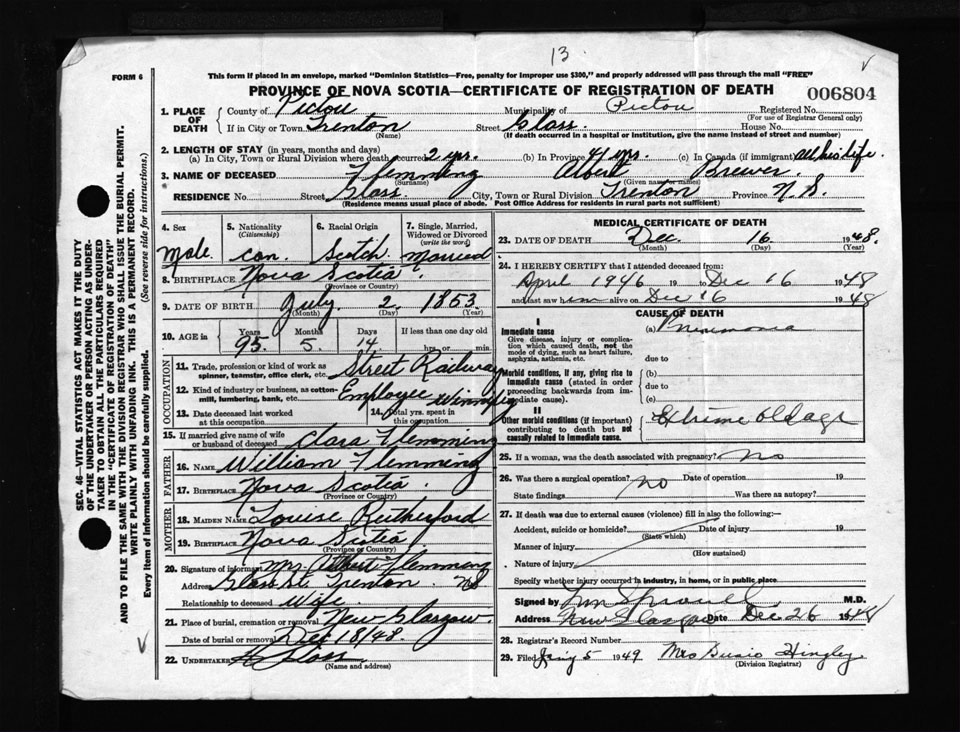 13
FORM 6
This form if placed in an envelope, marked "Dominion Statistics—Free, penalty for improper use $300," and properly addressed will pass through the mail "FREE"
PROVINCE OF NOVA SCOTIA—CERTIFICATE OF REGISTRATION OF DEATH
006804
1. PLACE OF DEATH
County of Pictou Municipality of Pictou Registered No.
(For use of Registrar General only)
If in City or Town Trenton Street Glass House No.
(Name) (If death occurred in a hospital or institution, give the name instead of street and number)
2. LENGTH OF STAY (in years, months and days)
(a) In City, Town or Rural Division where death occurred 2 yrs. (b) In Province 41 yrs. (c) In Canada (if immigrant) all his life.
3. NAME OF DECEASED Flemming Albert Brewer
(Surname) (Given name or names)
RESIDENCE No. Street Glass City, Town or Rural Division Trenton Province N.S.
(Residence means usual place of abode. Post Office Address for residents in rural parts not sufficient)
4. Sex
Male
5. Nationality
(Citizenship)
Can.
6. Racial Origin
Scotch
7. Single, Married, Widowed or Divorced
(write the word)
Married
8. BIRTHPLACE Nova Scotia
(Province or Country)
9. DATE OF BIRTH July 2 1853
(Month) (Day) (Year)
10. AGE in Years Months Days If less than one day old
95 5 14 hrs. or min.
OCCUPATION
11. Trade, profession or kind of work as spinner, teamster, office clerk, etc. Street Railway
12. Kind of industry or business, as cotton-mill, lumbering, bank, etc. Employee Winnipeg
13. Date deceased last worked at this occupation
14. Total yrs. spent in this occupation
15. If married give name of wife or husband of deceased Clara Flemming
FATHER
16. NAME William Flemming
17. BIRTHPLACE Nova Scotia
(Province or Country)
MOTHER
18. MAIDEN NAME Louise Rutherford
19. BIRTHPLACE Nova Scotia
(Province or Country)
20. Signature of informant Mrs. Albert Flemming
Address Glass St. Trenton NS
Relationship to deceased Wife
21. Place of burial, cremation or removal New Glasgow
Date of burial or removal Dec 18/48
22. UNDERTAKER
(Name and address)
MEDICAL CERTIFICATE OF DEATH
23. DATE OF DEATH Dec. 16 1948.
(Month) (Day) (Year)
24. I HEREBY CERTIFY that I attended deceased from:
April 1946 19 to Dec 16 1948
and last saw him alive on Dec 16 1948
CAUSE OF DEATH
I
Immediate cause
Give disease, injury or complication which caused death, not the mode of dying, such as heart failure, asphyxia, asthenia, etc.
(a) Pneumonia
due to
Morbid conditions, if any, giving rise to immediate cause (stated in order proceeding backwards from immediate cause).
(b)
due to
(c)
II
Other morbid conditions (if important) contributing to death but not causally related to immediate cause.
Extreme old age
25. If a woman, was the death associated with pregnancy? No
26. Was there a surgical operation? No Date of operation 19
State findings Was there an autopsy?
27. If death was due to external causes (violence) fill in also the following:—
Accident, suicide or homicide? Date of injury 19
(State which)
Manner of injury
(How sustained)
Nature of injury
Specify whether injury occurred in industry, in home, or in public place
Signed by M.D.
Address New Glasgow Date Dec 26 1948
28. Registrar's Record Number
29. Filed Jany 5 1949 Mrs Hingley
(Division Registrar)
SEC. 46—VITAL STATISTICS ACT MAKES IT THE DUTY
OF THE UNDERTAKER OR PERSON ACTING AS UNDER-
TAKER TO OBTAIN ALL THE PARTICULARS REQUIRED
IN THE "CERTIFICATE OF REGISTRATION OF DEATH"
AND TO FILE THE SAME WITH THE DIVISION REGISTRAR WHO SHALL ISSUE THE BURIAL PERMIT.
WRITE PLAINLY WITH UNFADING INK. THIS IS A PERMANENT RECORD.
Every item of information should be carefully supplied. (See reverse side for instructions.)